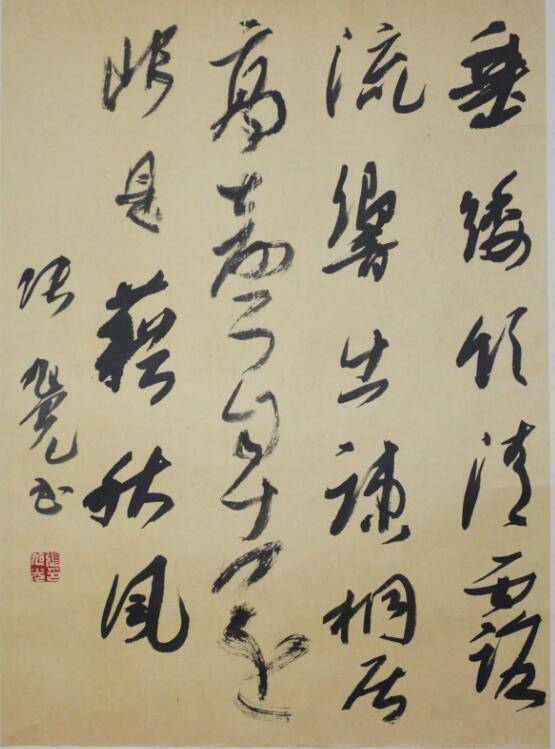 垂緌飲清露
流響出疎桐居
高聲自遠
非是藉秋風
張旭光書